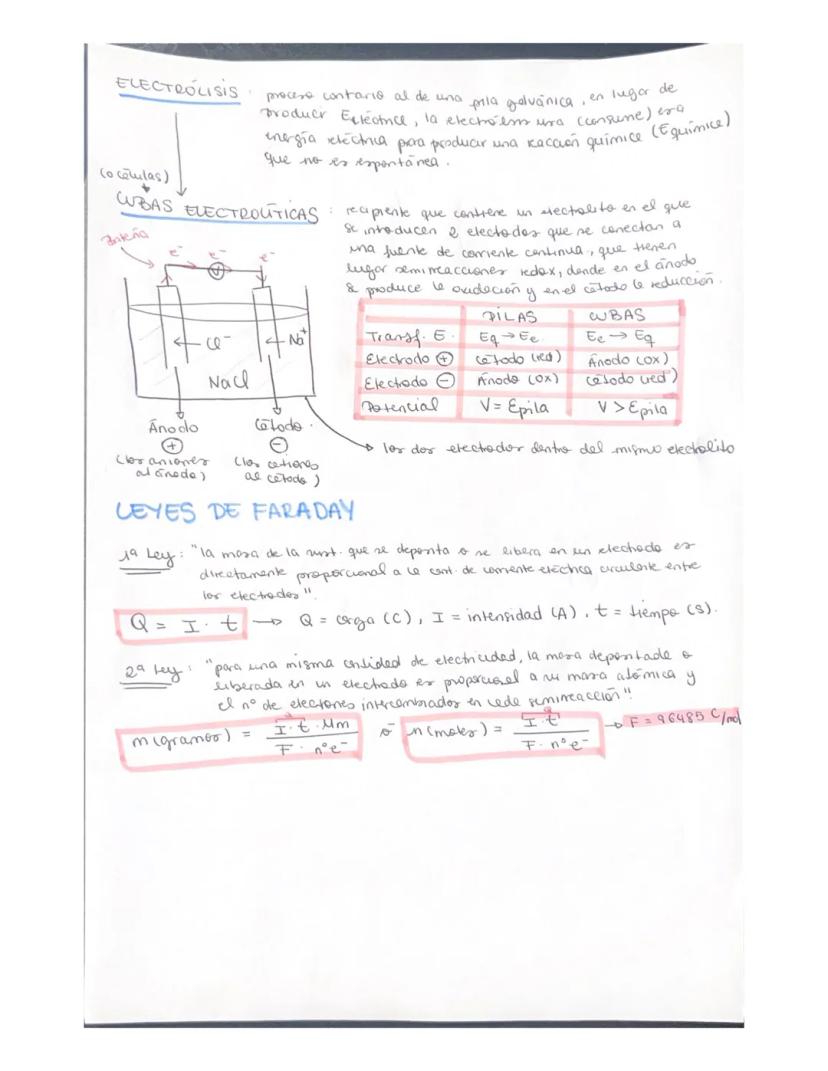 ELECTRÓLISIS : proceso contario al de una pila galvánica, en lugar de
producir E eléctrica, la electrólisis usa (consume) esa
energía eléctrica para producir una reacción química (E química)
que no es espontánea.
(o células)
CUBAS ELECTROLÍTICAS : recipiente que contiene un electrolito en el que
se introducen 2 electrodos que se conectan a
una fuente de corriente continua, que tienen
lugar semirreacciones redox, donde en el ánodo
se produce la oxidación y en el cátodo la reducción.
Batería
e⁻ e⁻ e⁻
V
Cl⁻ Na⁺
NaCl
Ánodo Cátodo
+ −
(los aniones al ánodo) (los cationes al cátodo)
→ los dos electrodos dentro del mismo electrolito
PILAS CUBAS
Transf. E. Eq → Ee Ee → Eq
Electrodo ⊕ cátodo (red) Ánodo (ox)
Electrodo ⊖ Ánodo (ox) cátodo (red)
Potencial V = Epila V > Epila
LEYES DE FARADAY
1ª Ley : "la masa de la sust. que se deposita o se libera en un electrodo es
directamente proporcional a la cant. de corriente eléctrica circulante entre
los electrodos".
Q = I · t → Q = carga (C), I = intensidad (A), t = tiempo (s).
2ª Ley : "para una misma cantidad de electricidad, la masa depositada o
liberada en un electrodo es proporcional a su masa atómica y
el nº de electrones intercambiados en cada semirreacción".
m (gramos) = I · t · Mm / F · nº e⁻ ó n (moles) = I · t / F · nº e⁻ → F = 96485 C/mol